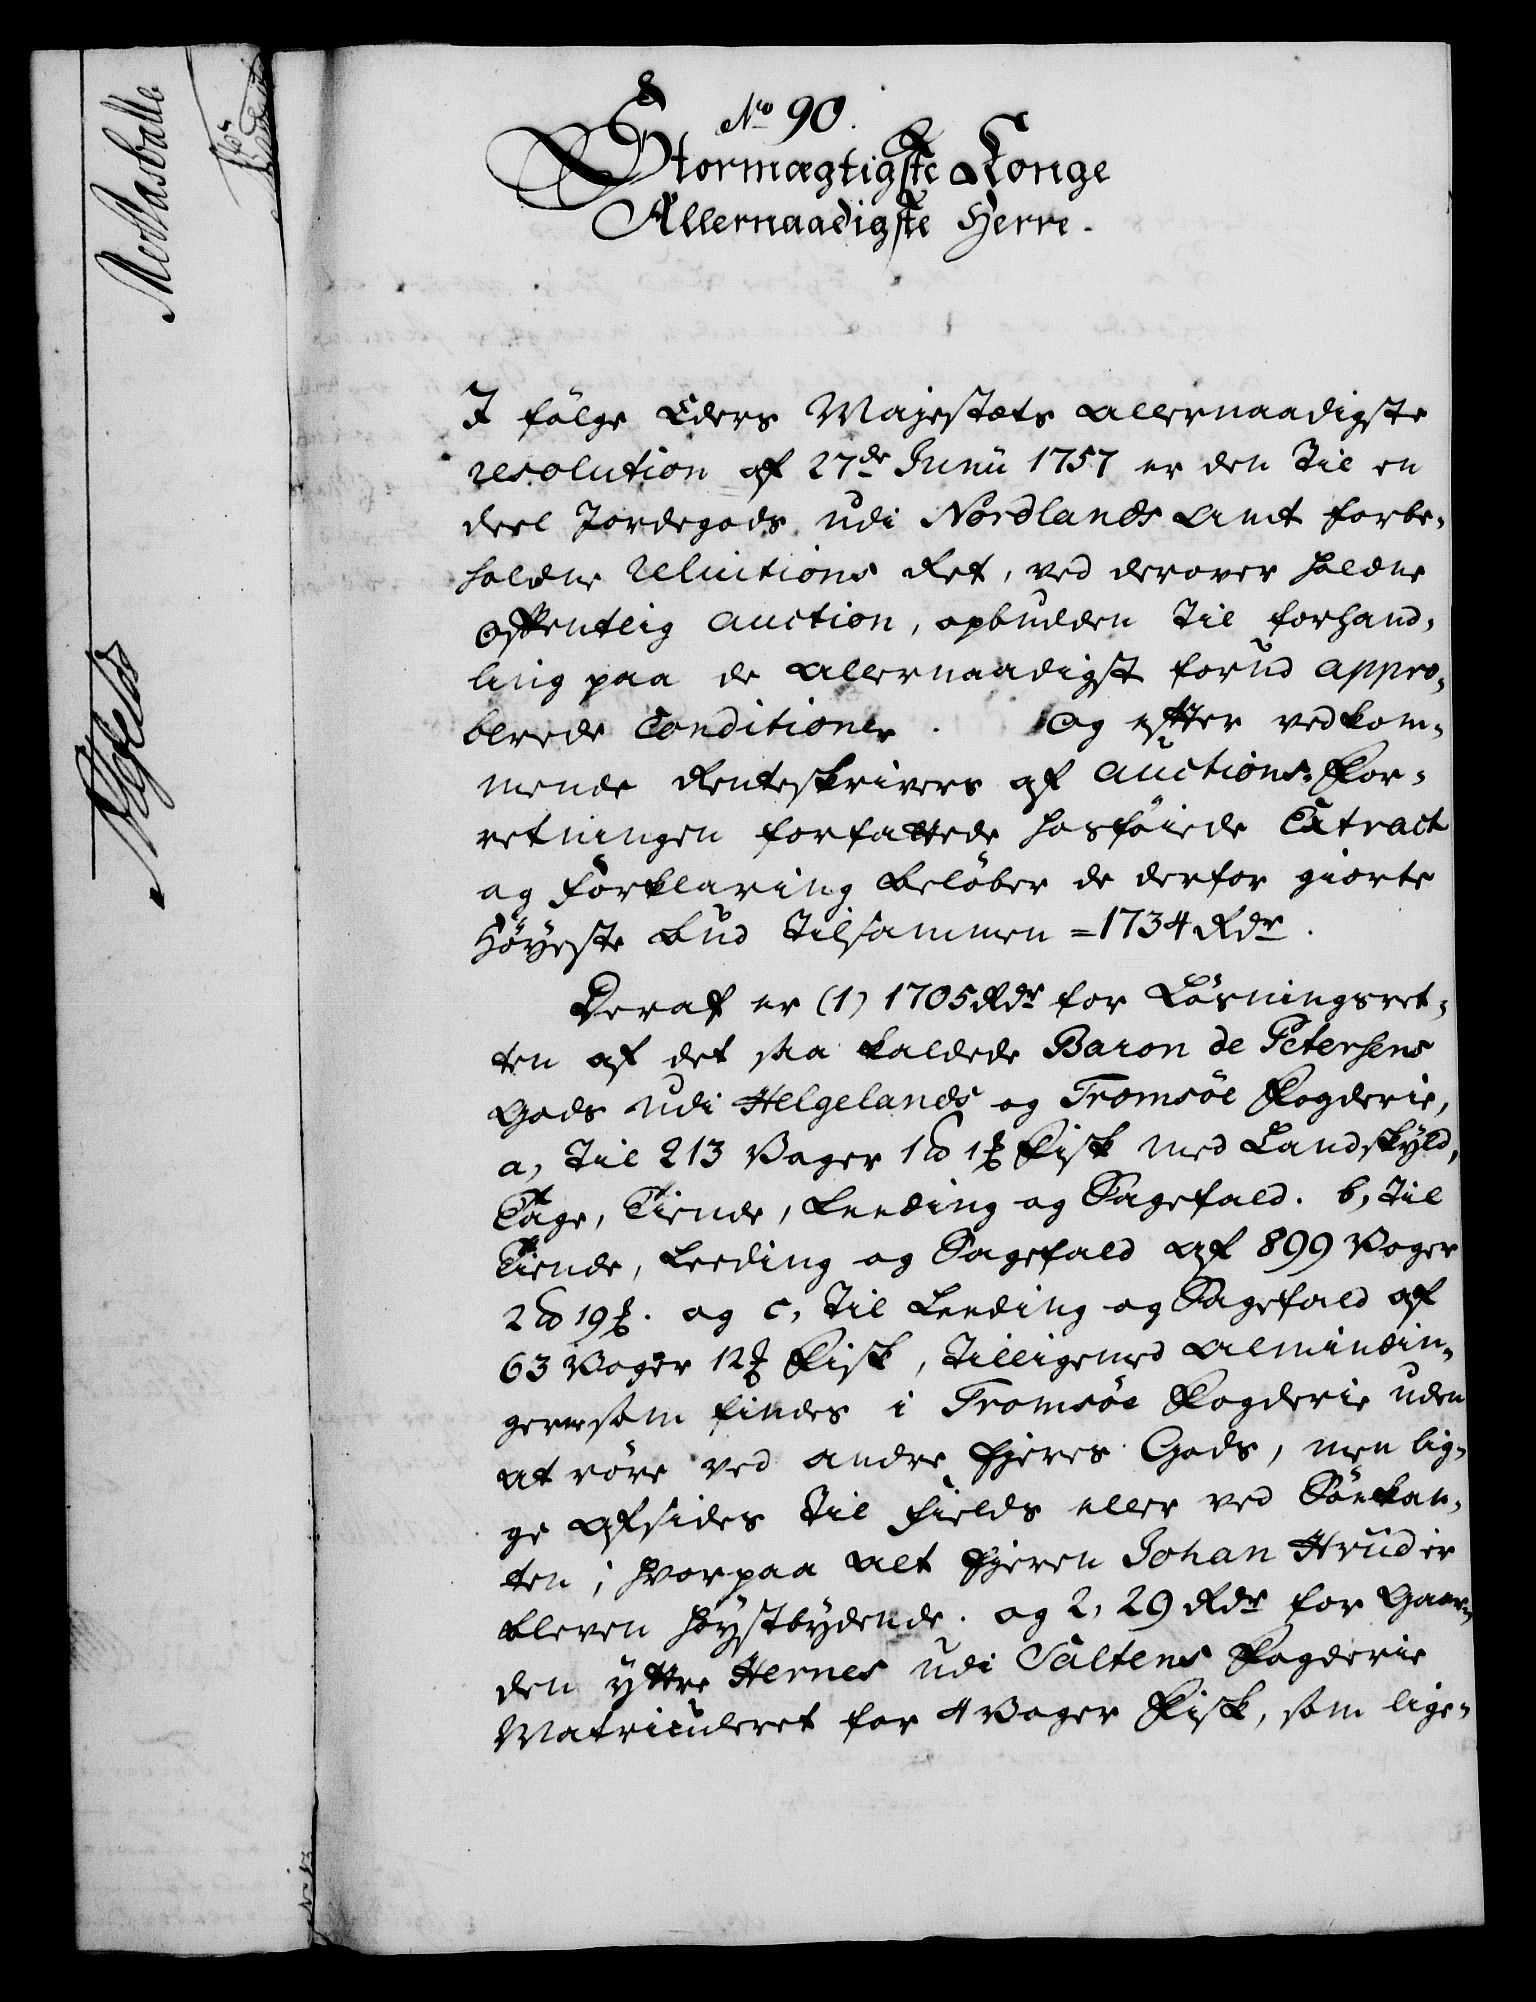 No 90.
Stormægtigste Konge
Allernaadigste Herre.
I fölge Eders Majestæts allernaadigste
resolution af 27de Junii 1757 er den til en
deel Jordegods udi Nordlands Amt forbe-
holdne reluitions Ret, ved derover holdne
offentlig auction, opbudden til forhand-
ling paa de allernaadigst forud appro-
berede Conditioner. Og efter vedkom-
mende Renteskrivers af auctions-For-
retningen forfattede hosföiede Extract
og Forklaring belöber de derfor giorte
Höyeste bud tilsammen =1734 Rdr.
Deraf er (1) 1705 Rdr for Lösningsret-
ten af det saa kaldede Baron de Petersens
Gods udi Helgelands og Tromsöe Fogderie,
a, til 213 Voger 1 pd 1 ℔ Fisk med Landskyld,
Tage, Tiende, Leeding og Sagefald. b, til
Tiende, Leeding og Sagefald af 899 Voger
2 pd 19 ℔. og c, til Leeding og Sagefald af
63 Voger 12 ℔ Fisk, tilligemed almindin-
ger som findes i Tromsöe Fogderie uden
at röre ved andre Ejeres Gods, men lig-
ge afsides til Fields eller ved Söekan-
ten; hvorpaa alt Ejeren Johan Hvid er
bleven höystbydende. og 2, 29 Rdr for Gaar-
den yttre Hernes udi Saltens Fogderie
Matriculeret for 4 Voger Fisk, som lige-